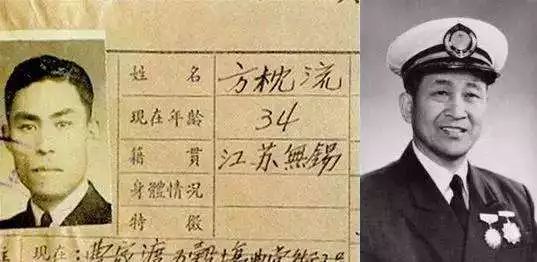 姓名 方枕流
现在年龄 34
籍貫 江苏無锡
身體情况
特徵
现在: